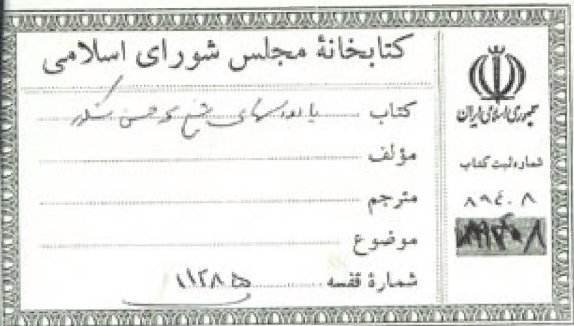 کتابخانهٔ مجلس شورای اسلامی
کتاب یادداشتهای شیخ
مؤلف
مترجم
موضوع
شمارهٔ قفسه ۱۱۲۸۵
جمهوری اسلامی ایران
شماره ثبت کتاب
۸۹۴۰۸